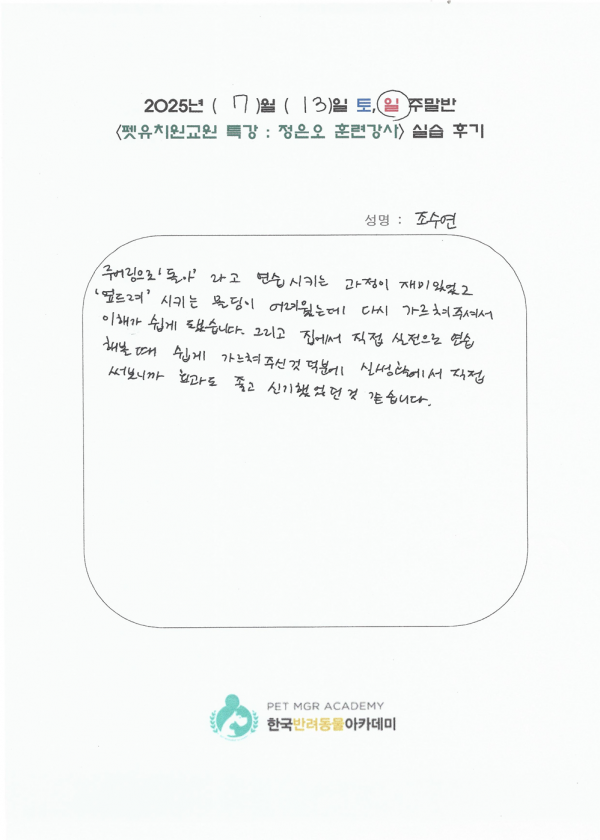 2025년 ( 7 )월 ( 13 )일 토, 일 주말반
<펫유치원교원 특강 : 정은오 훈련강사> 실습 후기
성명 : 조수연
루어링으로 '돌아' 라고 연습시키는 과정이 재미있었고
'엎드려' 시키는 몰딩이 어려웠는데 다시 가르쳐주셔서
이해가 쉽게 되었습니다. 그리고 집에서 직접 실전으로 연습
해볼때 쉽게 가르쳐주신것 덕분에 실생활에서 직접
써보니까 효과도 좋고 신기했었던것 같습니다.
PET MGR ACADEMY
한국반려동물아카데미